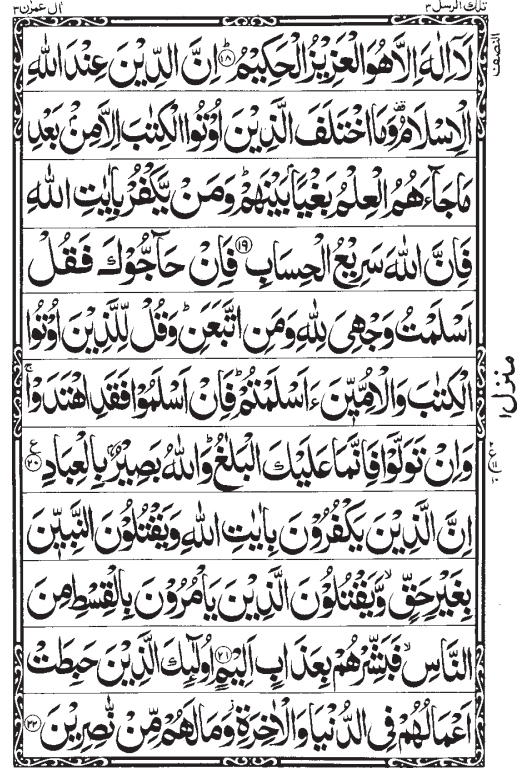 تلك الرسل ٣
ال عمرٰن ٣
لَاۤ اِلٰهَ اِلَّا هُوَ الْعَزِیْزُ الْحَكِیْمُؕ۝۱۸ اِنَّ الدِّیْنَ عِنْدَ اللّٰهِ
النصف
الْاِسْلَامُ۫ وَمَا اخْتَلَفَ الَّذِیْنَ اُوْتُوا الْكِتٰبَ اِلَّا مِنْۢ بَعْدِ
مَا جَآءَهُمُ الْعِلْمُ بَغْیًۢا بَیْنَهُمْؕ وَمَنْ یَّكْفُرْ بِاٰیٰتِ اللّٰهِ
فَاِنَّ اللّٰهَ سَرِیْعُ الْحِسَابِ۝۱۹ فَاِنْ حَآجُّوْكَ فَقُلْ
اَسْلَمْتُ وَجْهِیَ لِلّٰهِ وَمَنِ اتَّبَعَنِؕ وَقُلْ لِّلَّذِیْنَ اُوْتُوا
الْكِتٰبَ وَالْاُمِّیّٖنَ ءَاَسْلَمْتُمْؕ فَاِنْ اَسْلَمُوْا فَقَدِ اهْتَدَوْاۚ
منزل ١
وَاِنْ تَوَلَّوْا فَاِنَّمَا عَلَیْكَ الْبَلٰغُؕ وَاللّٰهُ بَصِیْرٌۢ بِالْعِبَادِ۝۲۰ ع
اِنَّ الَّذِیْنَ یَكْفُرُوْنَ بِاٰیٰتِ اللّٰهِ وَیَقْتُلُوْنَ النَّبِیّٖنَ
بِغَیْرِ حَقٍّۙ وَّیَقْتُلُوْنَ الَّذِیْنَ یَاْمُرُوْنَ بِالْقِسْطِ مِنَ
النَّاسِۙ فَبَشِّرْهُمْ بِعَذَابٍ اَلِیْمٍ۝۲۱ اُولٰٓئِكَ الَّذِیْنَ حَبِطَتْ
اَعْمَالُهُمْ فِی الدُّنْیَا وَالْاٰخِرَةِؗ وَمَا لَهُمْ مِّنْ نّٰصِرِیْنَ۝۲۲